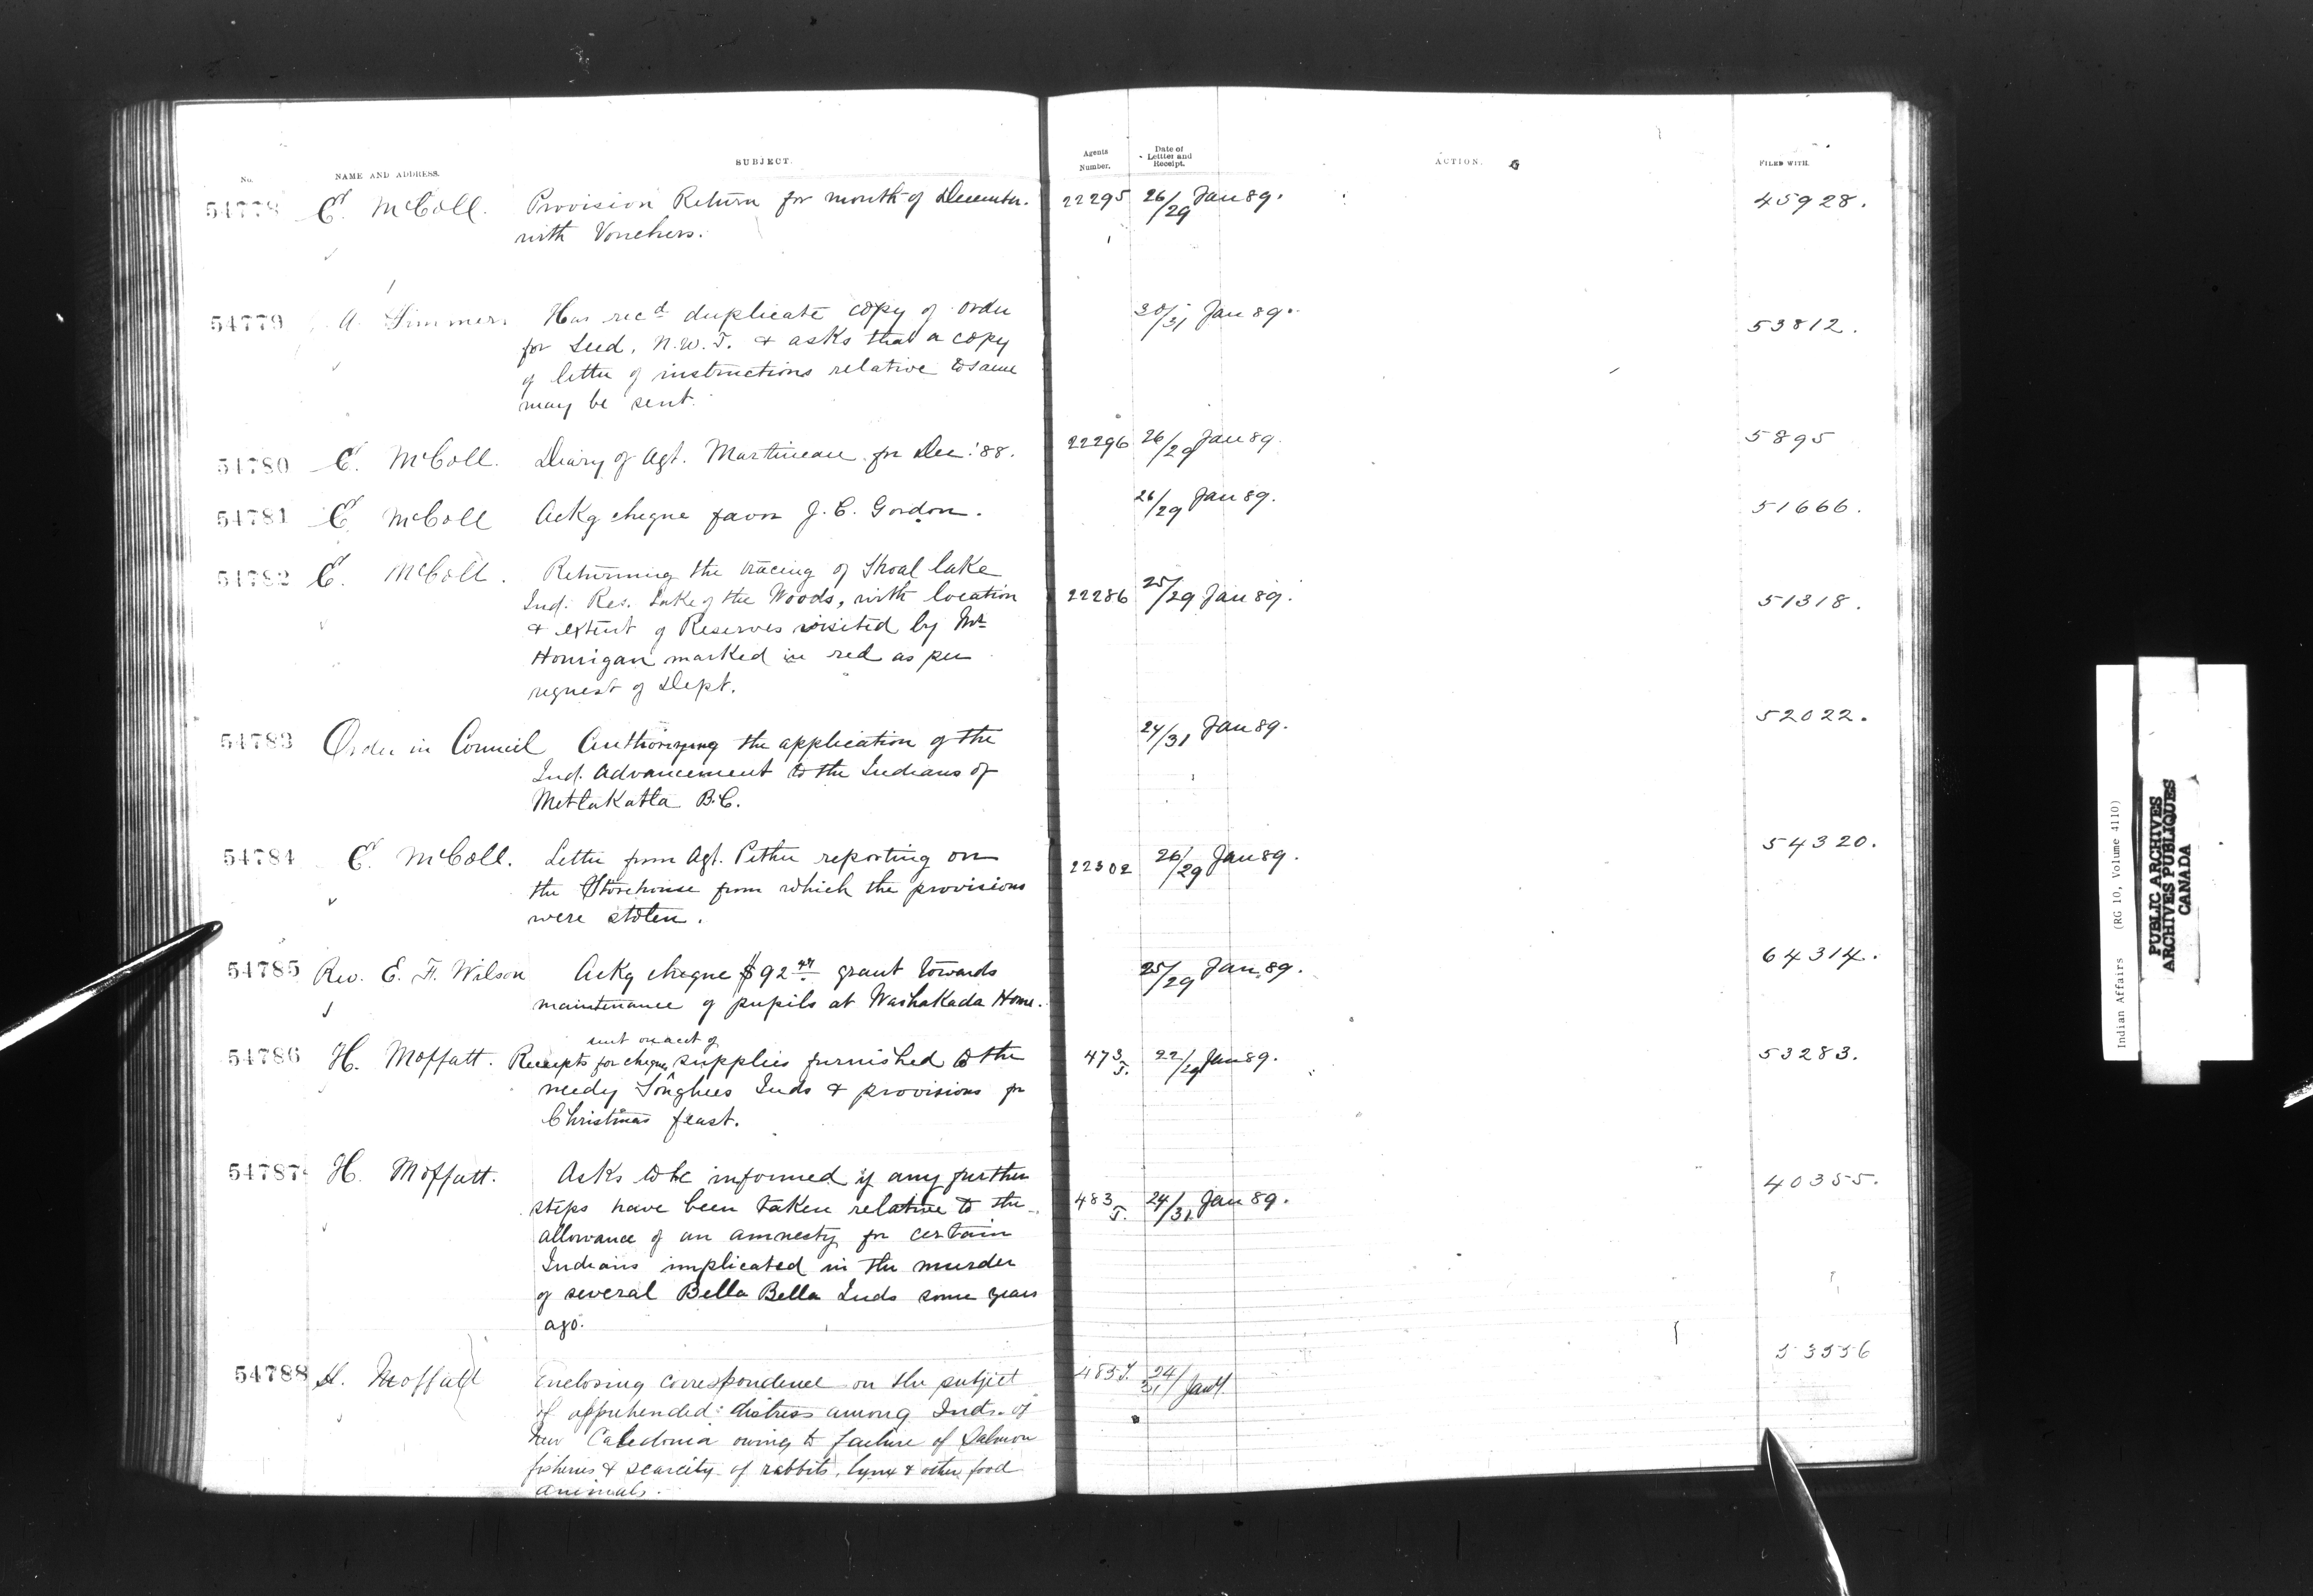 No. NAME AND ADDRESS. SUBJECT. Agents Number. Date of Letter and Receipt. ACTION. FILED WITH.
54778 E. McColl. Provision Return for month of December. 22295 26/29 Jan 89. 45928.
with Vouchers.
54779 A. Simmers Has recd duplicate copy of order 30/31 Jan 89. 53812.
for Seed, N.W.T. & asks that a copy
of letter of instructions relative to same
may be sent.
54780 E. McColl. Diary of Agt. Martineau for Dec. '88. 22296 26/29 Jan 89. 5895
54781 E McColl Ackg cheque favor J. C. Gordon. 26/29 Jan 89. 51666.
54782 E. McColl. Returning the tracing of Shoal lake
Ind: Res. Lake of the Woods, with location 22286 25/29 Jan 89. 51318.
& extent of Reserves visited by Mr
Hourigan marked in red as per
request of Dept.
54783 Order in Council Authorizing the application of the 24/31 Jan 89. 52022.
Ind. Advancement to the Indians of
Metlakatla B.C.
54784 E. McColl. Letter from Agt. Pither reporting on 22302 26/29 Jan 89. 54320.
the Storehouse from which the provisions
were stolen.
54785 Rev. E. F. Wilson Ackg cheque $92 grant towards 25/29 Jan 89. 64314.
maintenance of pupils at Washakada Home.
sent on acct of
54786 H. Moffatt. Receipts for cheques supplies furnished to the 473 J. 22/29 Jan 89. 53283.
needy Songhees Inds & provisions for
Christmas feast.
54787 H. Moffatt. Asks to be informed if any further 40355.
steps have been taken relative to the 483 J. 24/31 Jan 89.
allowance of an amnesty for certain
Indians implicated in the murder
of several Bella Bella Inds some years
ago.
54788 H. Moffatt Enclosing correspondence on the subject 485 J. 24/31 Jan 53556
of apprehended distress among Inds. of
New Caledonia owing to failure of Salmon
fisheries & scarcity of rabbits, lynx & other food
animals.
Indian Affairs (RG 10, Volume 4110)
PUBLIC ARCHIVES
ARCHIVES PUBLIQUES
CANADA